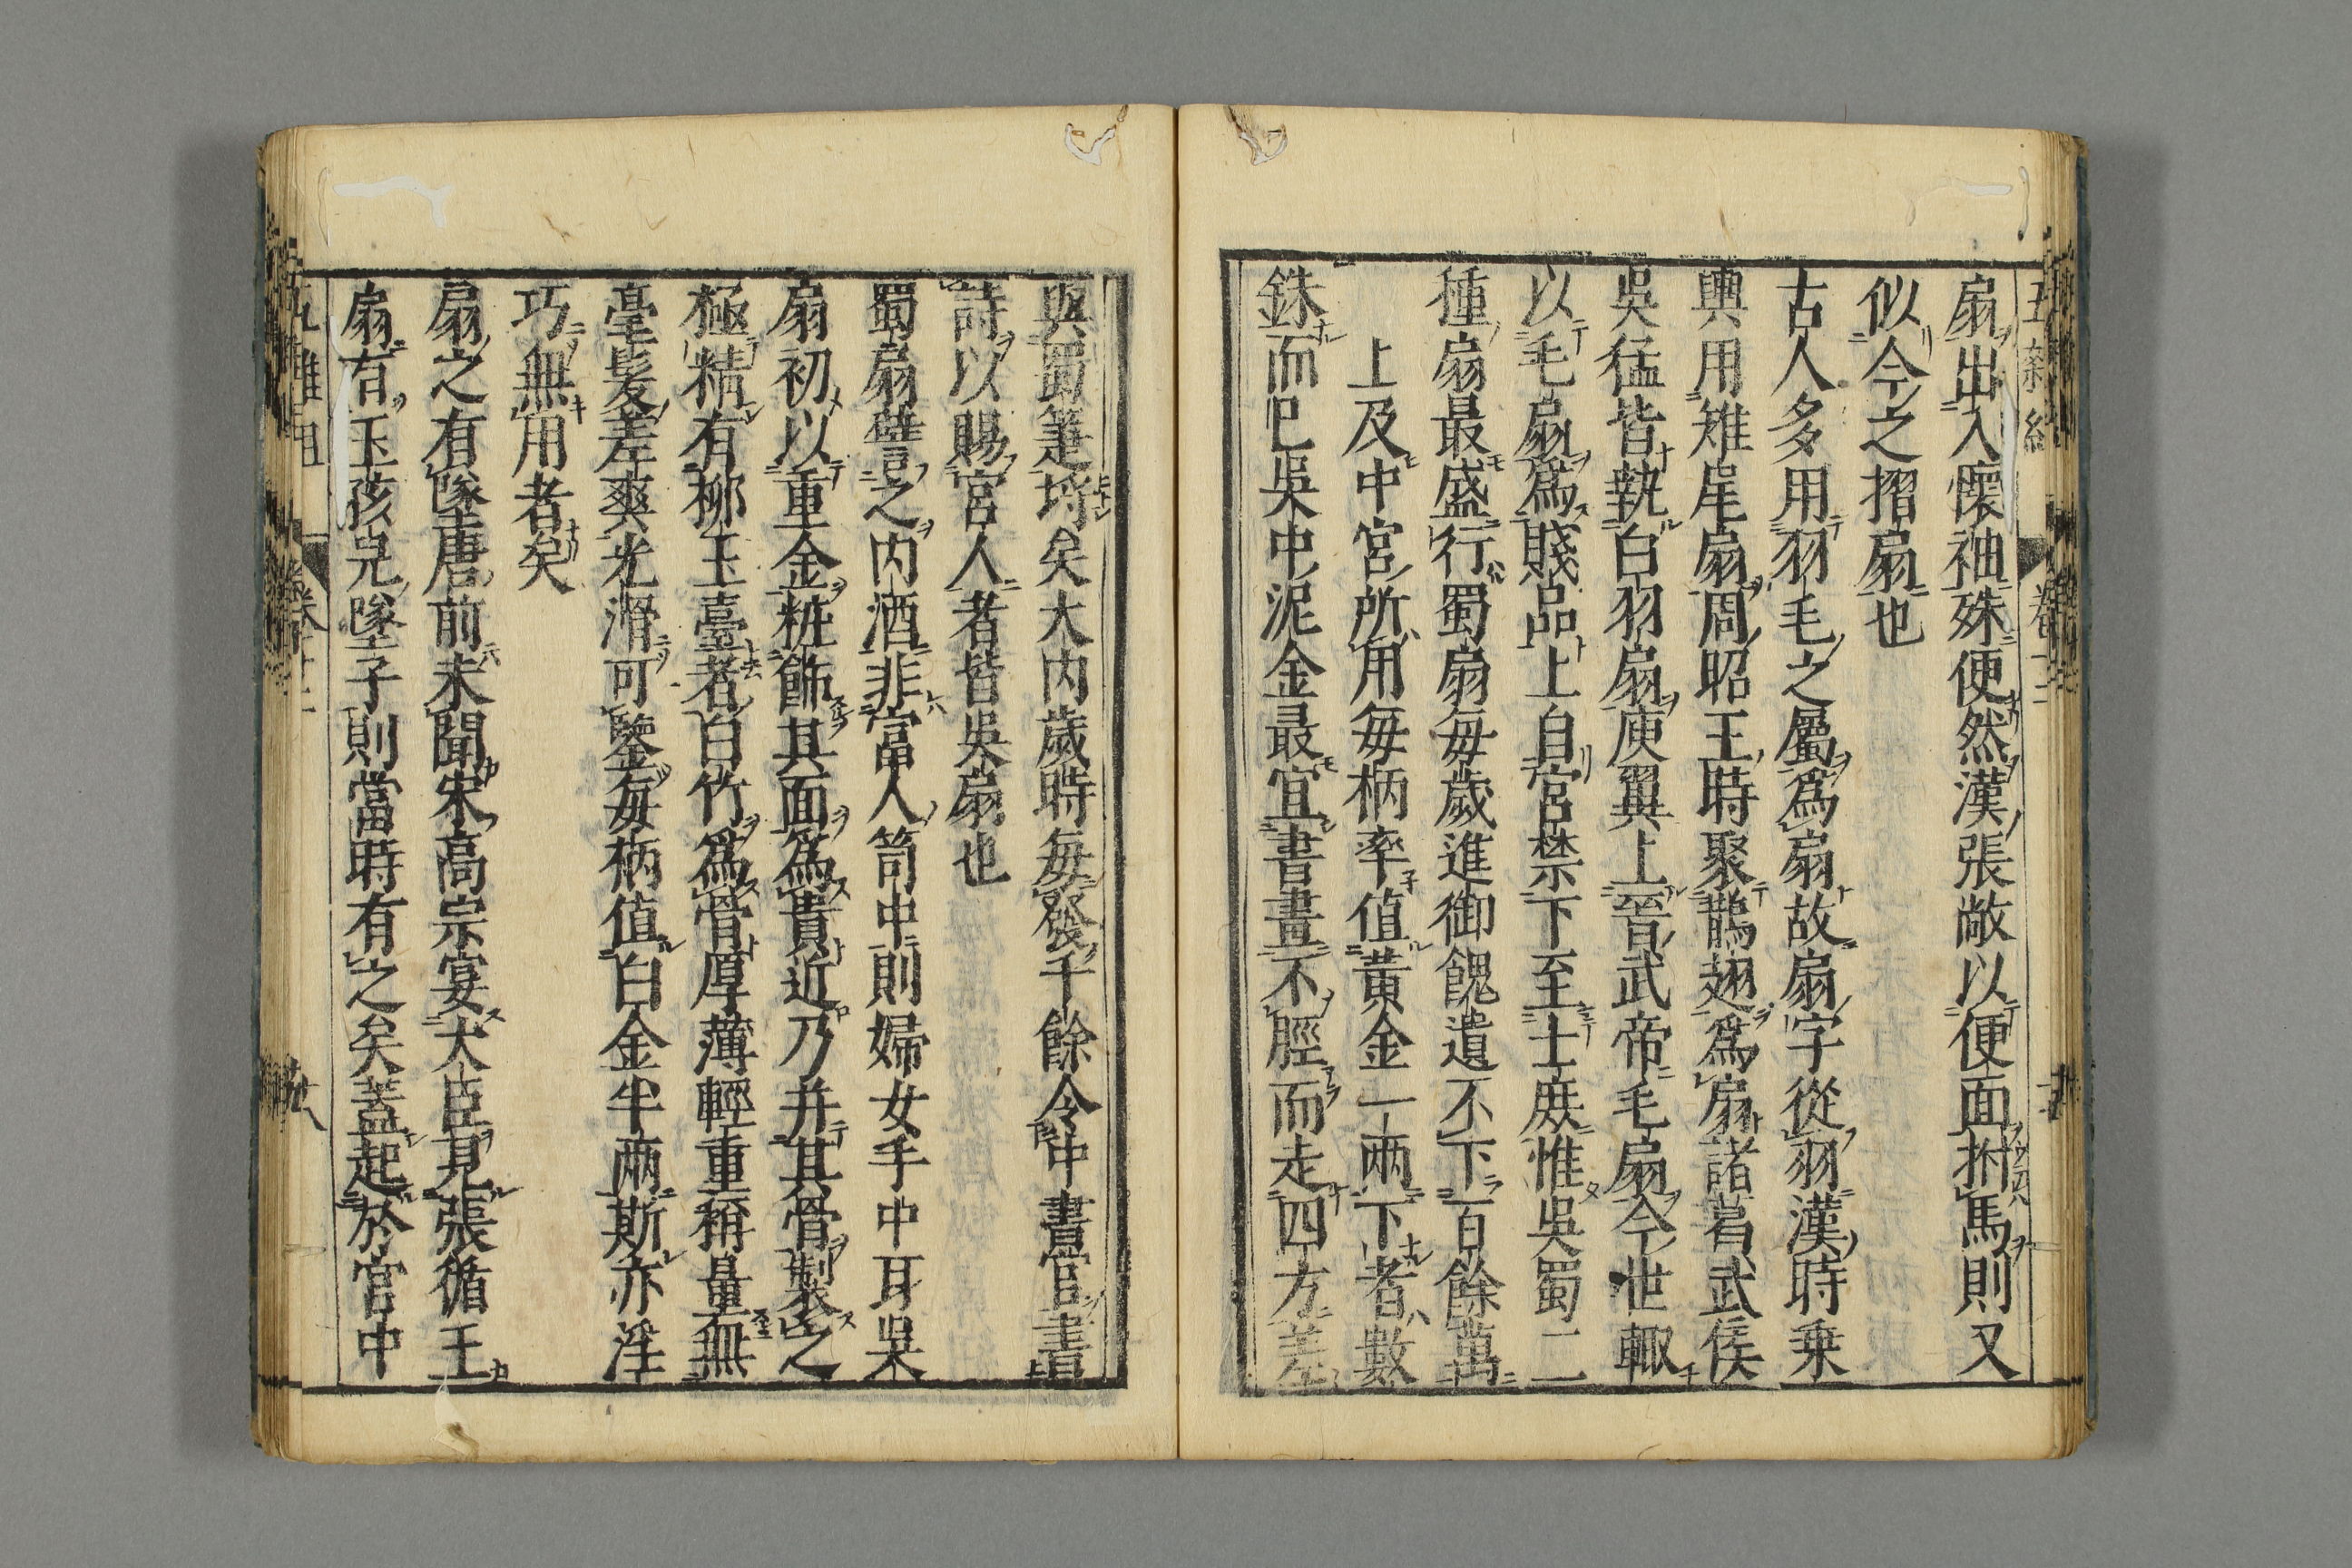 扇出入懷袖殊便然漢張敞以便面拊馬則又
似今之摺扇也
古人多用羽毛之屬爲扇故扇字從羽漢時乗
輿用雉尾扇周昭王時聚鵲翅爲扇諸葛武侯
吳猛皆執白羽扇庾翼上晉武帝毛扇今世輙
以毛扇爲賤品上自宮禁下至士庻惟吳蜀二
種扇最盛行蜀扇毎歲進御餽遺不下百餘萬
上及中宮所用毎柄率值黃金一兩下者數
銖而已吳中泥金最宜書畫不脛而走四方差
與蜀箑埒矣大内歲時毎發千餘令中書官書
詩以賜宮人者皆吳扇也
蜀扇譬之内酒非富人笥中則婦女手中耳吳
扇初以重金粧飾其面爲貴近乃并其骨製之
極精有柳玉臺者白竹爲骨厚薄輕重稱量無
毫髪差爽光滑可鑒毎柄值白金半兩斯亦淫
巧無用者矣
扇之有墜唐前未聞宋高宗宴大臣見張循王
扇有玉孩兒墜子則當時有之矣蓋起於宮中